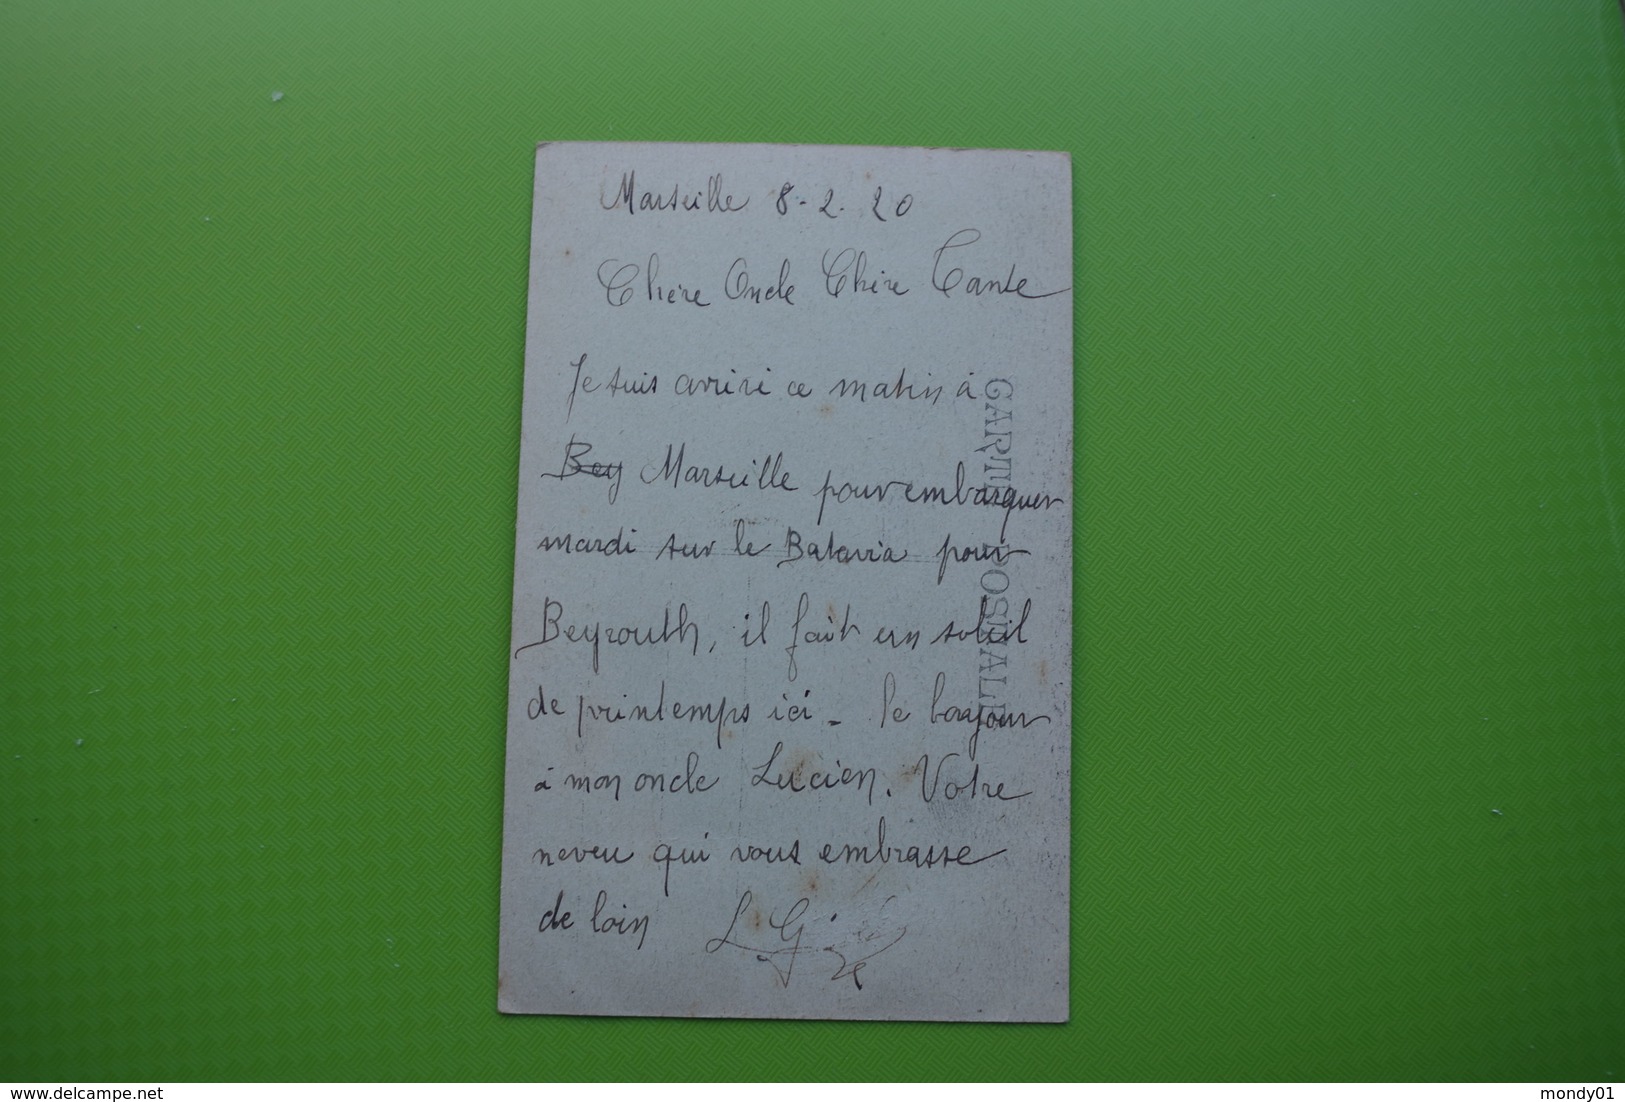 Marseille 8-2-20
Chère Oncle Chère Tante
Je suis arrivé ce matin à
Bey Marseille pour embarquer
mardi sur le Batavia pour
Beyrouth, il fait un soleil
de printemps ici - le bonjour
à mon oncle Lucien. Votre
neveu qui vous embrasse
de loin L G
CARTE POSTALE
www.delcampe.net
mondy01